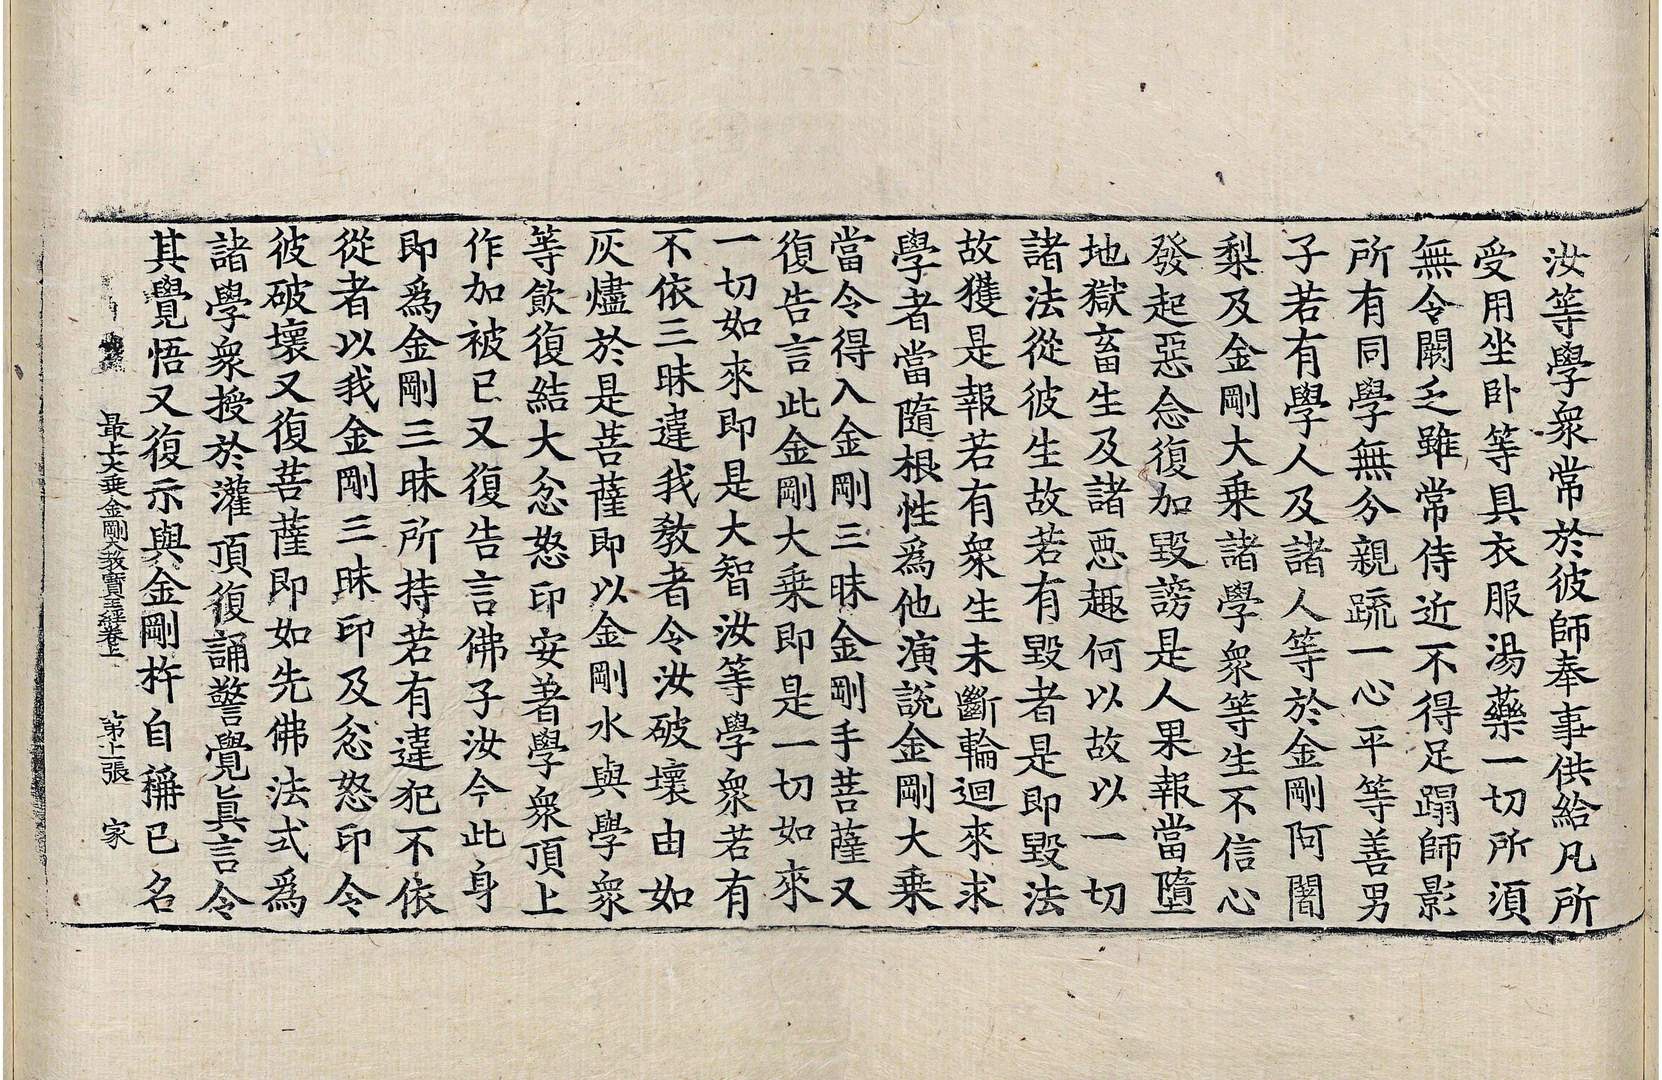 汝等學衆常於彼師奉事供給凡所
受用坐卧等具衣服湯藥一切所湏
無令闕乏雖常侍近不得足蹋師影
所有同學無分親踈一心平等善男
子若有學人及諸人等於金剛阿闍
梨及金剛大乗諸學衆等生不信心
發起惡念復加毀謗是人果報當墮
地獄畜生及諸悪趣何以故以一切
諸法從彼生故若有毀者是即毀法
故獲是報若有衆生未斷輪迴來求
學者當隨根性爲他演説金剛大乗
當令得入金剛三昧金剛手菩薩又
復告言此金剛大乗即是一切如來
一切如來即是大智汝等學衆若有
不依三昧違我教者令汝破壞由如
灰燼於是菩薩即以金剛水與學衆
等飲復結大忿怒印安著學衆頂上
作加被已又復告言佛子汝今此身
即爲金剛三昧所持若有違犯不依
從者以我金剛三昧印及忿怒印令
彼破壞又復菩薩即如先佛法式爲
諸學衆授於灌頂復誦警覺真言令
其覺悟又復示與金剛杵自稱已名
最上大乗金剛大教寶王經卷上 第十一張 家